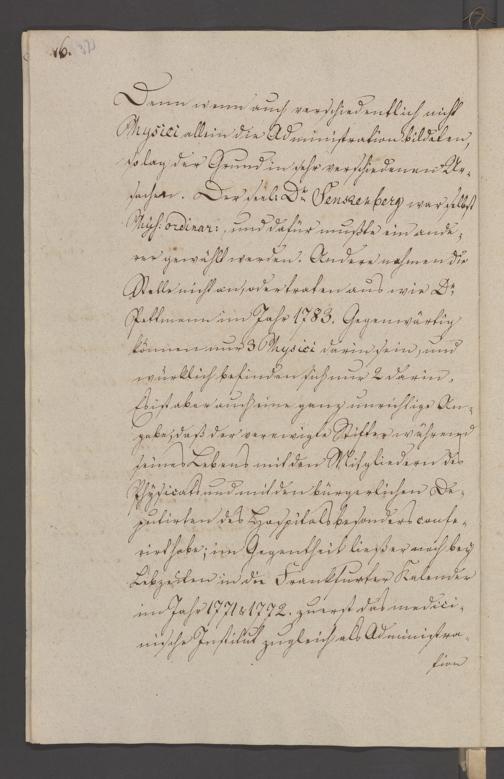 16.
Denn wenn auch verschiedentlich nicht
Physici allein die Administration bildeten,
so lag der Grund in sehr verschiedenen Ur-
sachen. Der seel: Dr. Senckenberg war selbst
Phys: ordinar:, und dafür mußte ein ande-
rer gewählt werden. Andere nahmen die
Stelle nicht an, oder traten aus wie Dr.
Pettmann im Jahr 1783. Gegenwärtig
können nur 3 Physici darin sein, und
würklich befinden sich nur 2 darin.
Es ist aber auch eine ganz unrichtige An-
gabe, daß der verewigte Stifter während
seines Lebens mit den Mitgliedern des
Physicats und mit den bürgerlichen De-
putirten des Hospitals besonders confe-
rirt habe; im Gegentheil ließ er noch bey
Lebzeiten in die Frankfurter Kalender
im Jahr 1771 & 1772. zuerst das medici-
nische Institut zugleich als Administra-
tion